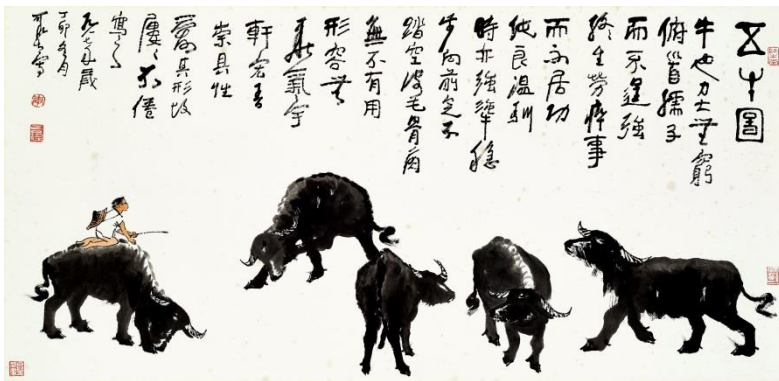 五牛圖
牛也力大無窮
俯首孺子
而不逞強
終生勞瘁事
而不居功
純良溫馴
時亦強犟穩
步向前足不
踏空皮毛骨角
無不有用
形容無
華氣宇
軒宏吾
崇其性
愛其形故
屢屢不倦
寫之
一九八七年歲
丁卯冬月
可染寫